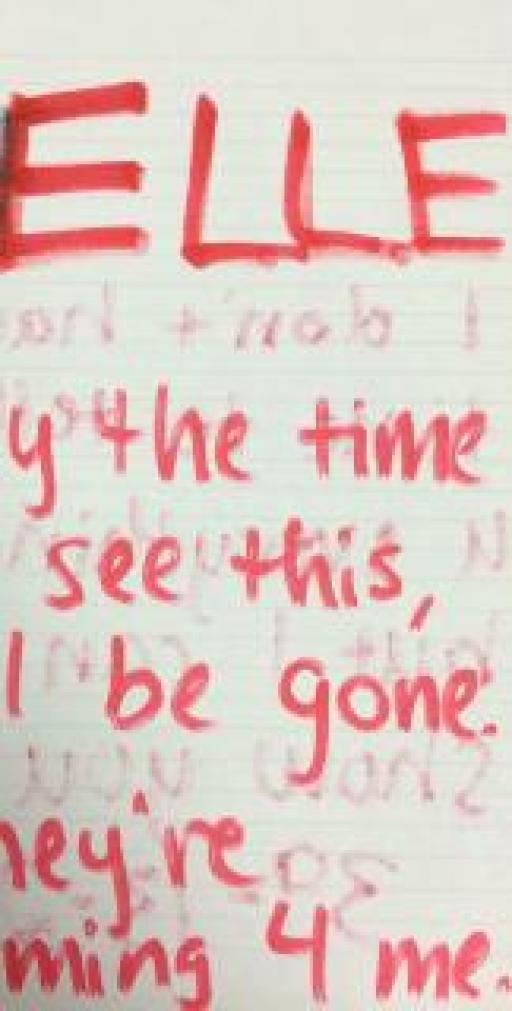 ELLE
y the time
see this,
l be gone.
hey're
ming 4 me.